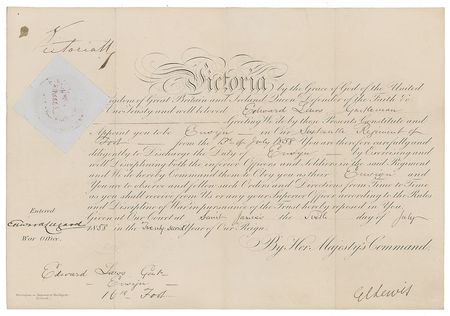 Victoria R
Victoria by the Grace of God of the United
Kingdom of Great Britain and Ireland Queen Defender of the Faith &c
To Our Trusty and well beloved Edward Laws Gentleman
Greeting We do by these Presents Constitute and
Appoint you to be Ensign in Our Sixteenth Regiment of
Foot from the of July 1858 You are therefore carefully and
diligently to Discharge the Duty of Ensign by Exercising and
well Disciplining both the inferior Officers and Soldiers in the said Regiment
and We do hereby Command them to Obey you as their Ensign and
You are to observe and follow such Orders and Directions from Time to Time
as you shall receive from Us or any your Superior Officer according to the Rules
and Discipline of War in pursuance of the Trust hereby reposed in You.
Given at Our Court at Saint James's the day of July
1858 in the Twenty second Year of Our Reign.
By Her Majesty's Command.
Entered
War Office.
Edward Laws Gent
Ensign
16th Foot